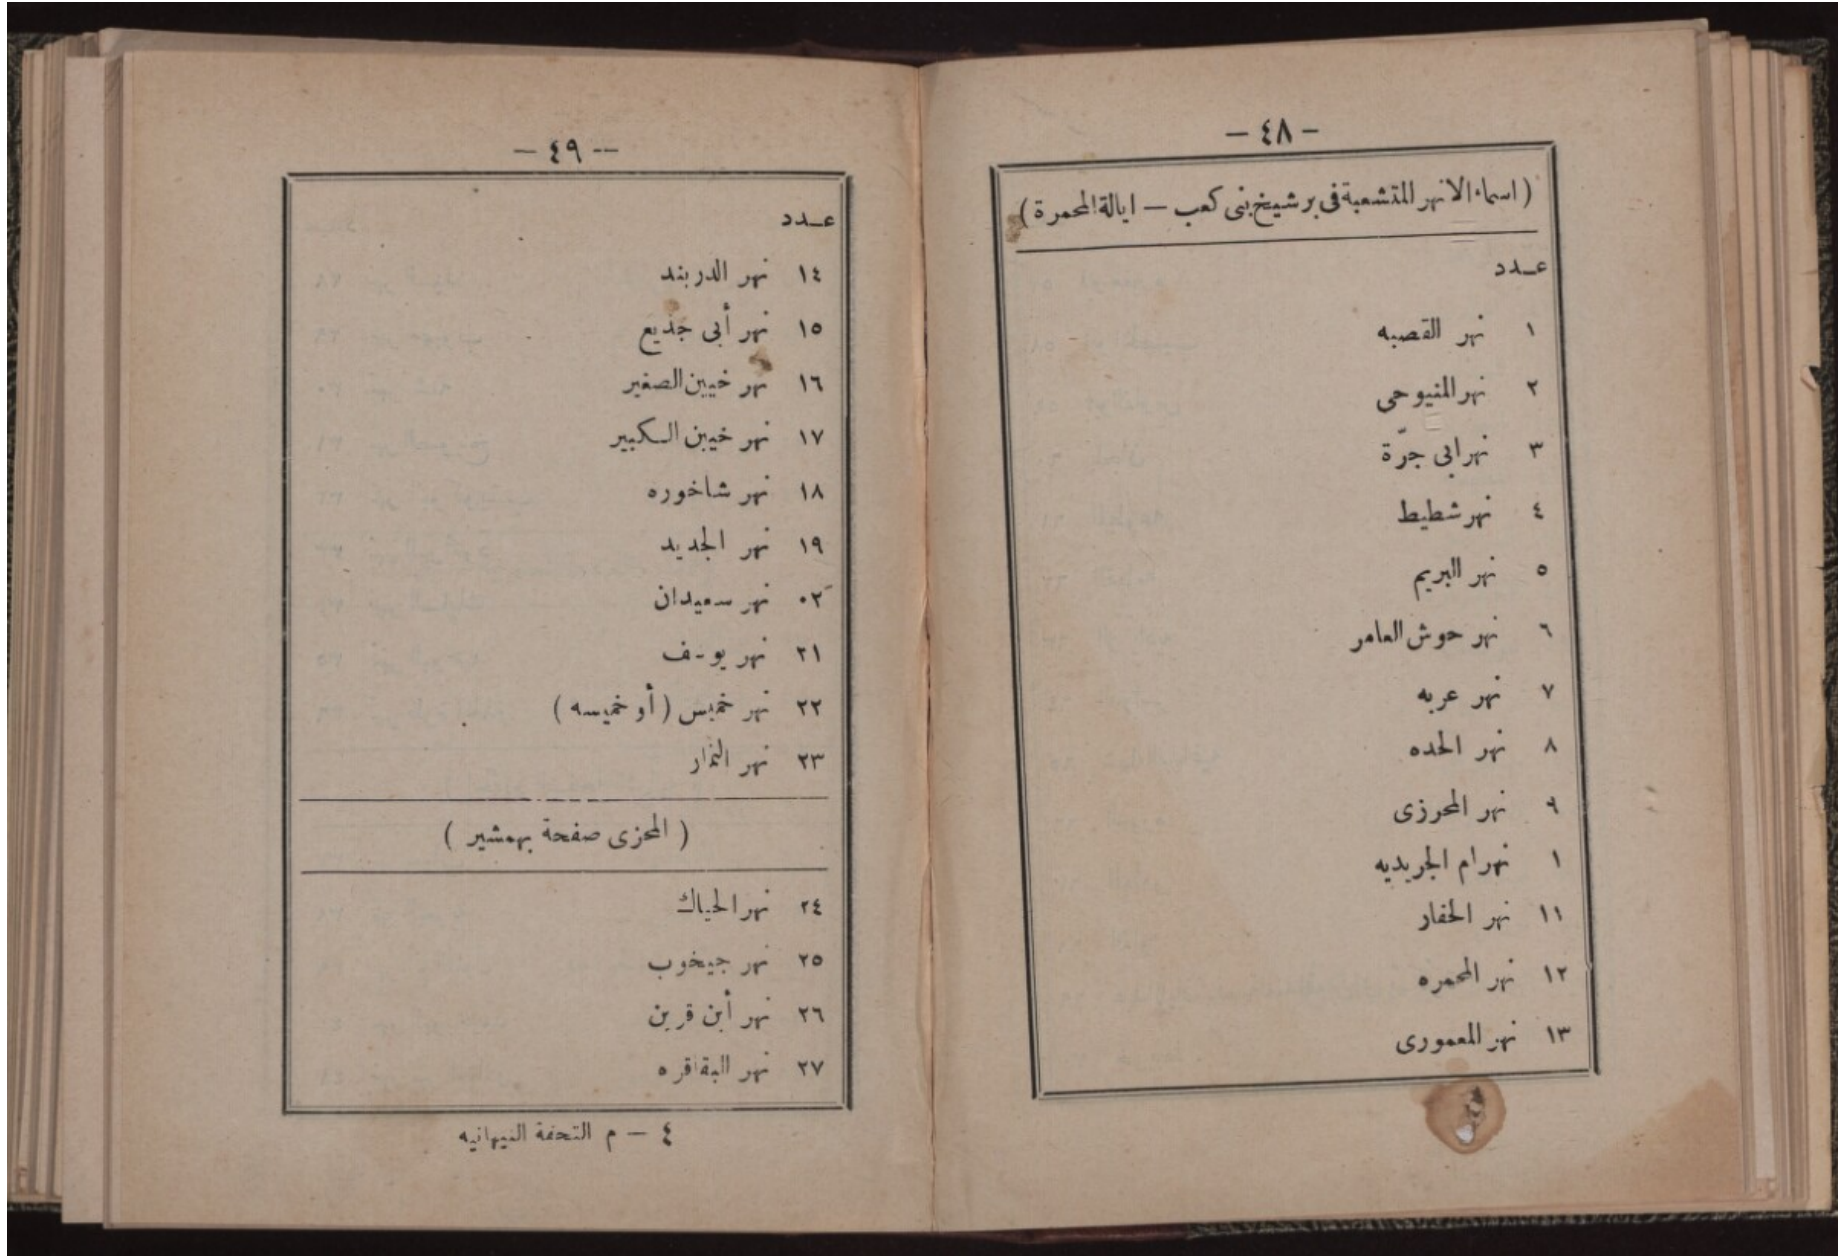 — ٤٨ —
( اسماء الانهر المتشعبة فى بر شيخ بنى كعب — ايالة المحمرة )
عـدد
١ نهر القصبه
٢ نهر المنيوحى
٣ نهر ابى جرّة
٤ نهر شطيط
٥ نهر البريم
٦ نهر حوش العامر
٧ نهر عربه
٨ نهر الحده
٩ نهر المحرزى
١ نهر ام الجريديه
١١ نهر الحفار
١٢ نهر المحمره
١٣ نهر المعمورى
— ٤٩ —
عـدد
١٤ نهر الدربند
١٥ نهر أبى جذيع
١٦ نهر خيين الصغير
١٧ نهر خيين الكبير
١٨ نهر شاخوره
١٩ نهر الجديد
٠٢ نهر سعيدان
٢١ نهر يوسف
٢٢ نهر خميس ( أو خميسه )
٢٣ نهر التمار
( المحزى صفحة بهمشير )
٢٤ نهر الحياك
٢٥ نهر جيخوب
٢٦ نهر أبن قرين
٢٧ نهر البقاقره
٤ — م التحفة النبهانيه